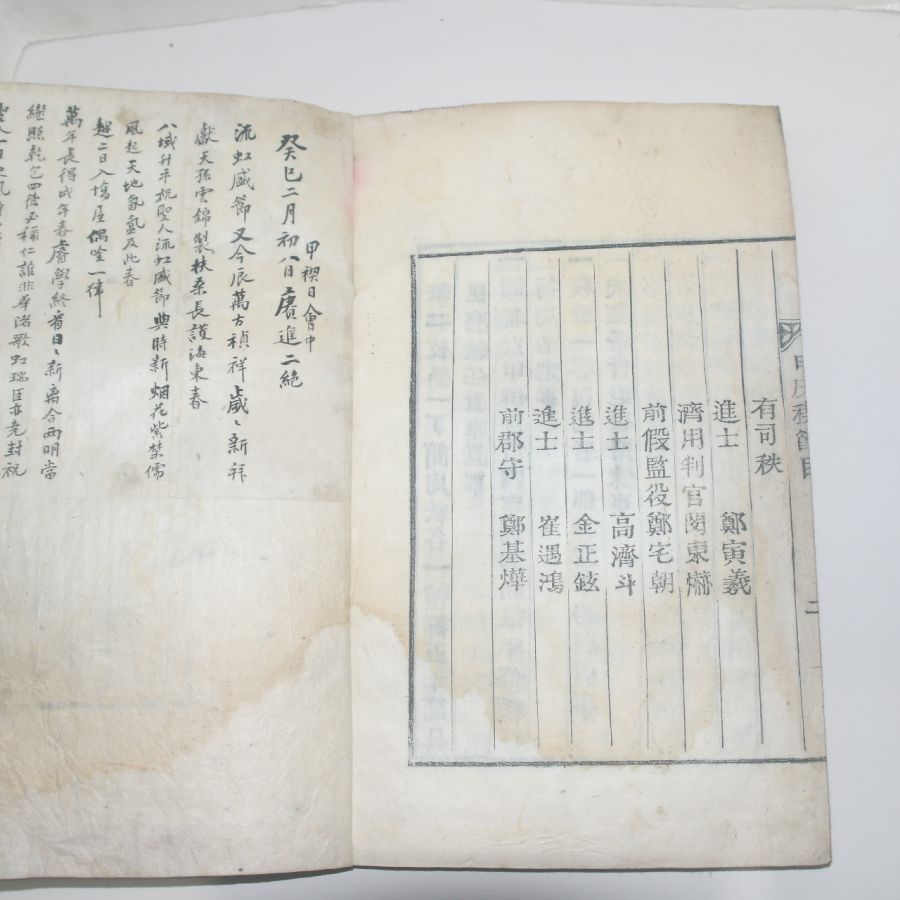 有司秩
進士 鄭寅羲
濟用判官閔東爀
前假監役鄭宅朝
進士 高濟斗
進士 金正鉉
進士 崔遇鴻
前郡守 鄭基燁
甲禊日會中
癸巳二月初八日賡進二絶
流虹盛節又今辰萬古禎祥歲〻新拜
獻天孫雲錦製扶桑長護海東春
八域升平祝聖人流虹盛節與時新烟花紫禁儒
風起天地氤氳及此春
越二日入塲屋偶吟一律
萬年長得戊年春 學終 日〻新 合兩明當
繼照乾 四 稱仁誰非華渚歌虹瑞臣亦堯封祝